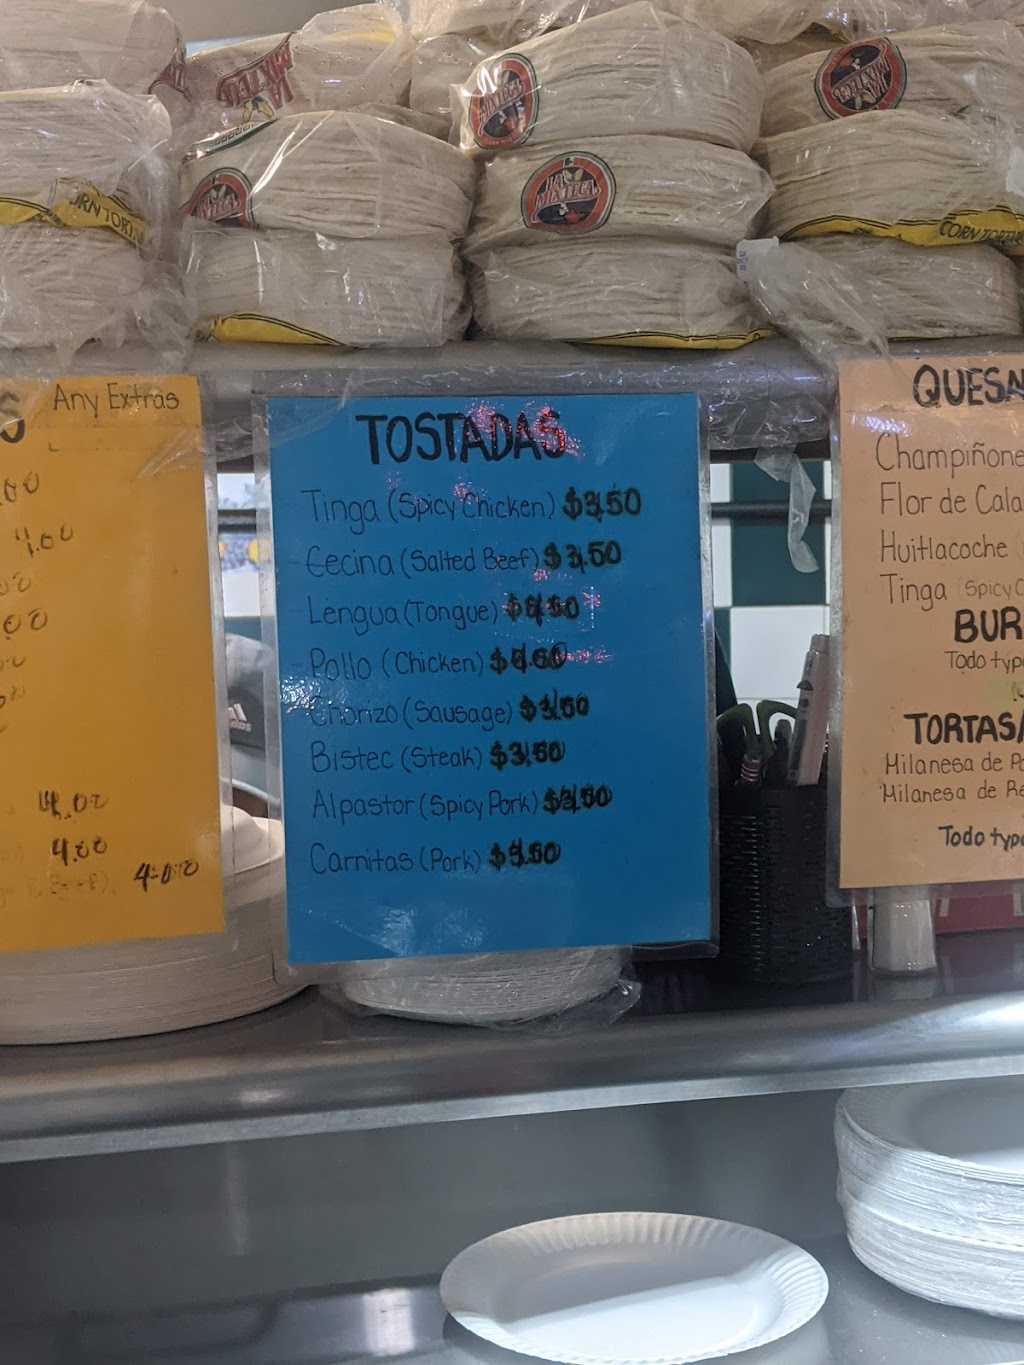 LA MIXTECA
LA MIXTECA
CORN TORT
CORN TORT
Any Extras
4.00
4.00
4.00
4.00
TOSTADAS
Tinga (Spicy Chicken) $3.50
Cecina (Salted Beef) $3.50
Lengua (Tongue)
Pollo (Chicken)
Chorizo (Sausage) $3.50
Bistec (Steak) $3.50
Alpastor (Spicy Pork) $3.50
Carnitas (Pork) $3.50
QUESA
Champiñone
Flor de Cala
Huitlacoche
Tinga (Spicy C
BUR
Todo typ
TORTAS
Milanesa de Po
Milanesa de Re
Todo typ